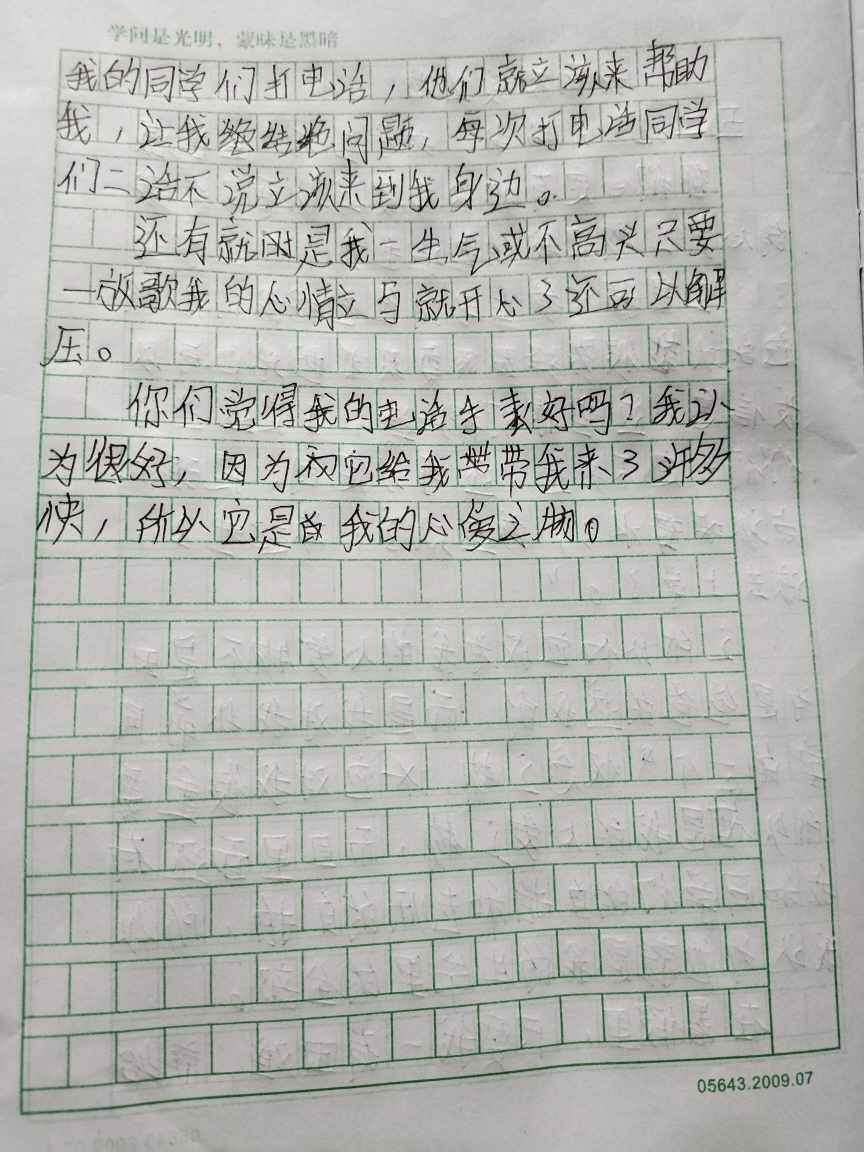 学问是光明，蒙昧是黑暗
我的同学们打电话，他们就立刻来帮助
我，让我解决问题，每次打电话同学
们二话不说立刻来到我身边。
还有就是我一生气或不高兴只要
一放歌我的心情立马就开心了还可以解
压。
你们觉得我的电话手表好吗？我认
为很好，因为它给我带我来了许多
快，所以它是我的心爱之物。
05643.2009.07